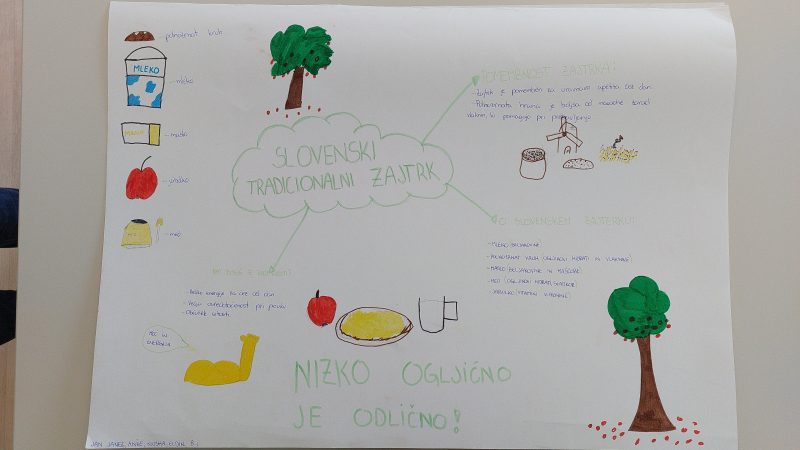 polnozrnat kruh
MLEKO
- mleko
MASLO
- maslo
- jabolko
MED
- med
SLOVENSKI
TRADICIONALNI ZAJTRK
POMEMBNOST ZAJTRKA:
- Zajtrk je pomemben za uravnavo apetita čez dan.
- Polnozrnata hrana je boljša od navadne zaradi
vlaknin, ki pomagajo pri
O SLOVENSKEM ZAJTRKU:
- MLEKO: BELJAKOVINE
- POLNOZRNAT KRUH (OGLJIKOVI HIDRATI IN VLAKNINE)
- MASLO: BELJAKOVINE IN MAŠČOBE
- MED (OGLJIKOVI HIDRATI, SLADKOR)
- JABOLKO (VITAMINI, VLAKNINE)
- Večja energije za cel dan
- Večja osredotočenost pri pouku
- Občutek sitosti
MOČ IN
ENERGIJA
NIZKO OGLJIČNO
JE ODLIČNO!